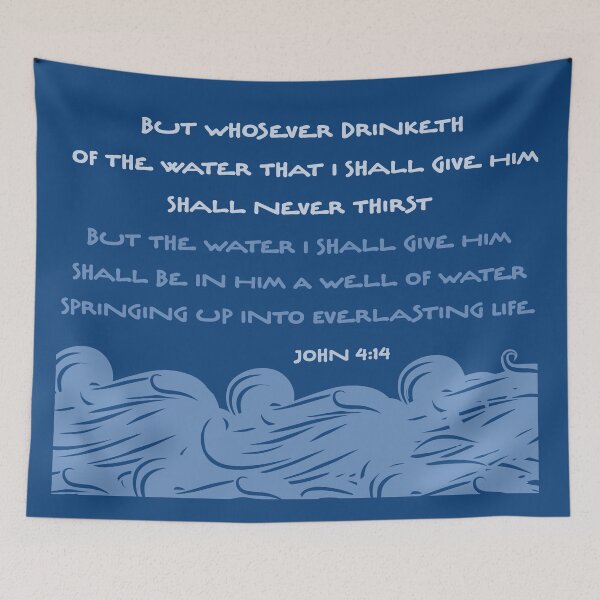 BUT WHOSEVER DRINKETH
OF THE WATER THAT I SHALL GIVE HIM
SHALL NEVER THIRST
BUT THE WATER I SHALL GIVE HIM
SHALL BE IN HIM A WELL OF WATER
SPRINGING UP INTO EVERLASTING LIFE
JOHN 4:14